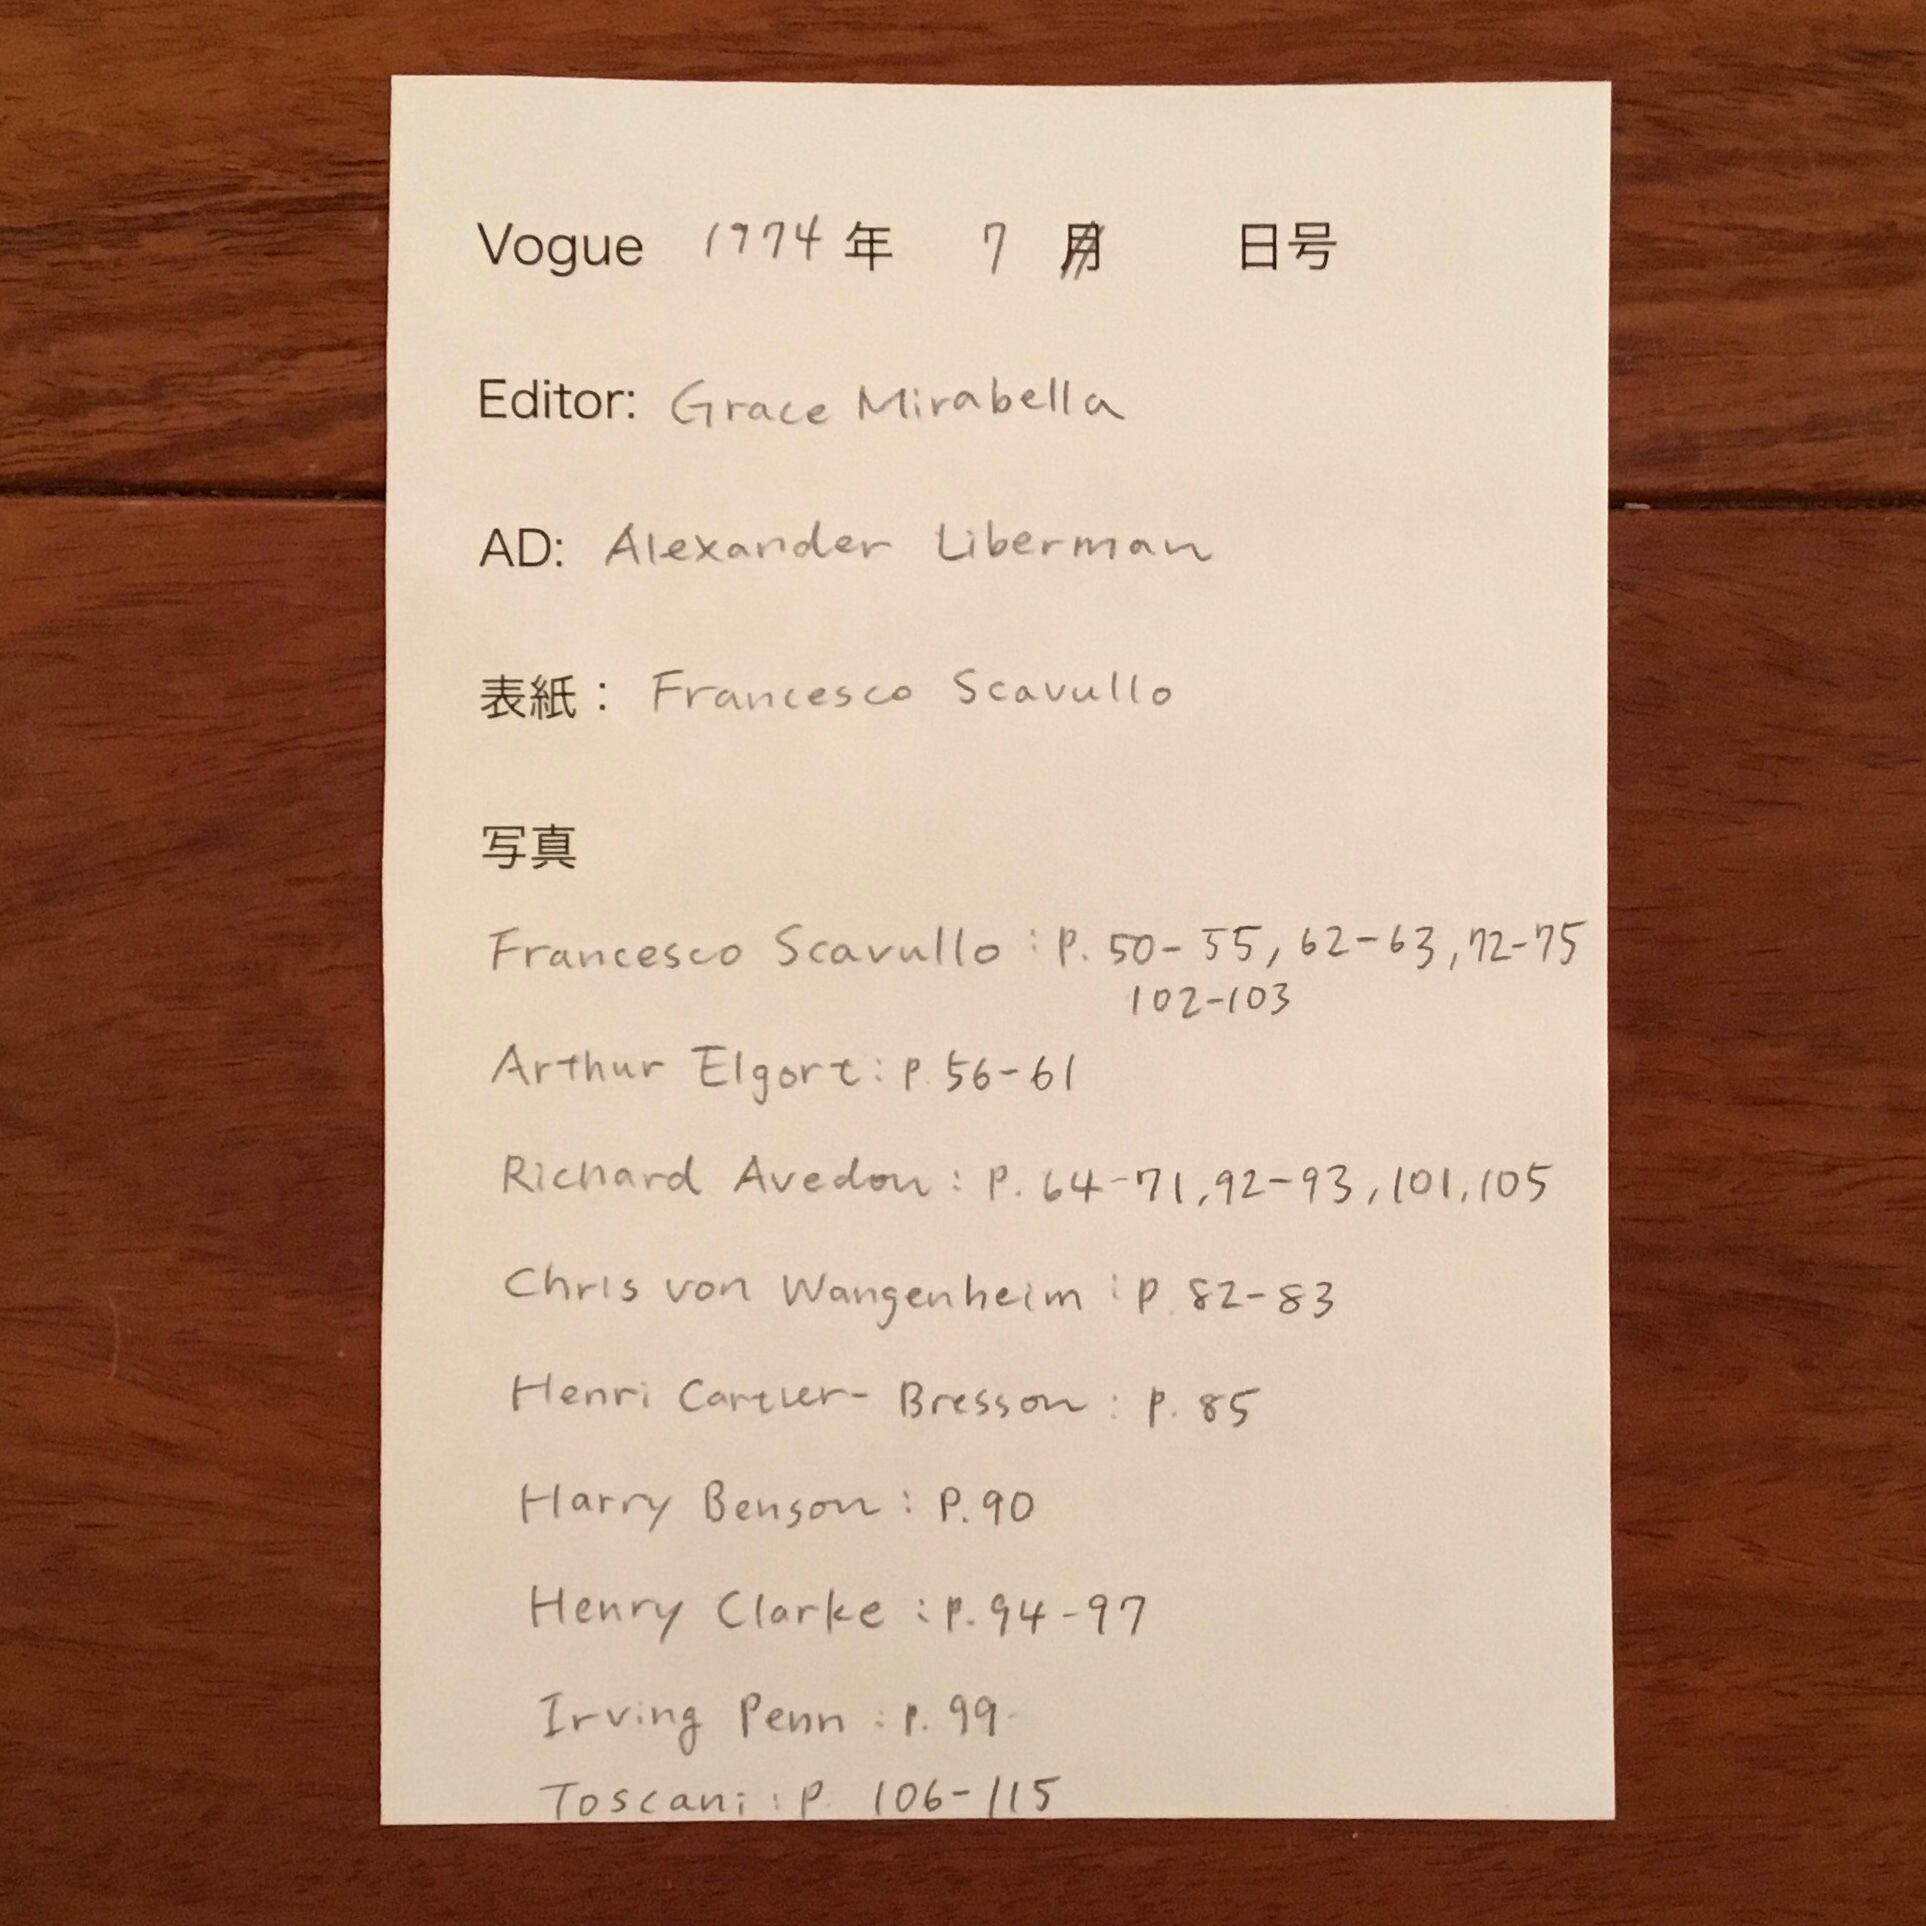 Vogue 1974年 7月 日号
Editor: Grace Mirabella
AD: Alexander Liberman
表紙: Francesco Scavullo
写真
Francesco Scavullo: P. 50-55, 62-63, 72-75
102-103
Arthur Elgort: P. 56-61
Richard Avedon: P. 64-71, 92-93, 101, 105
Chris von Wangenheim: P. 82-83
Henri Cartier-Bresson: P. 85
Harry Benson: P. 90
Henry Clarke: P. 94-97
Irving Penn: P. 99
Toscani: P. 106-115